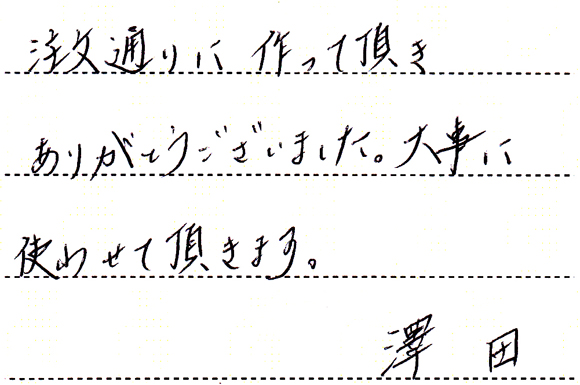 注文通りに作って頂き
ありがとうございました。大事に
使わせて頂きます。
澤田